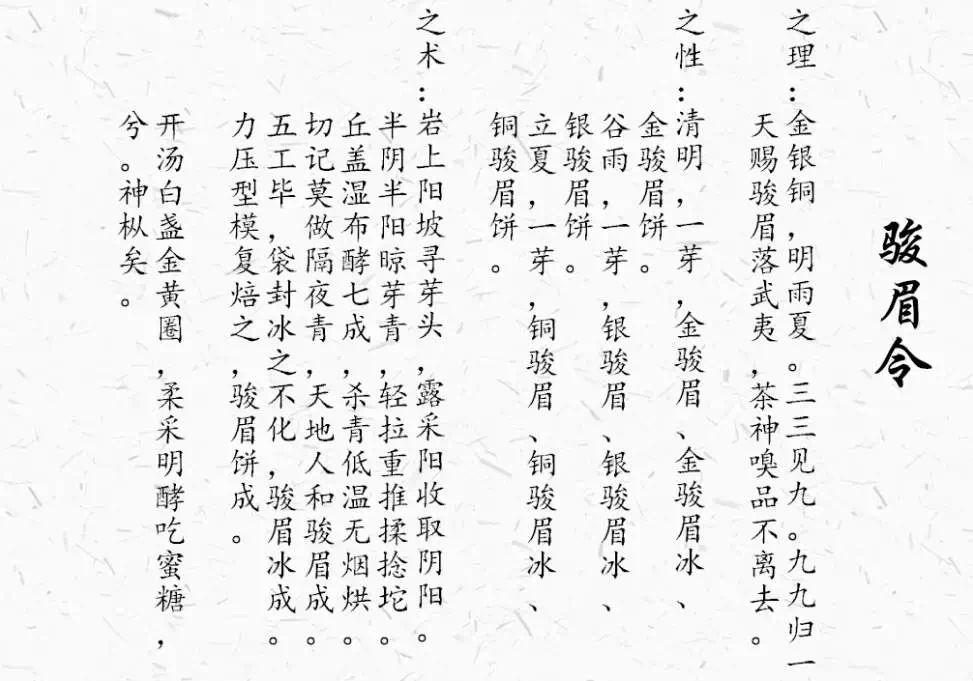 骏眉令
之理：金银铜，明雨夏。三三见九。九九归一
天赐骏眉落武夷，茶神嗅品不离去。
之性：清明，一芽，金骏眉、金骏眉冰、
金骏眉饼。
谷雨，一芽，银骏眉、银骏眉冰、
银骏眉饼。
立夏，一芽，铜骏眉、铜骏眉冰、
铜骏眉饼。
之术：岩上阳坡寻芽头，露采阳收取阴阳。
半阴半阳晾芽青，轻拉重推揉捻坨。
丘盖湿布酵七成，杀青低温无烟烘。
切记莫做隔夜青，天地人和骏眉成。
五工毕，袋封冰之不化，骏眉冰成。
力压型模复焙之，骏眉饼成。
开汤白盏金黄圈，柔采明酵吃蜜糖，
兮。神枞矣。